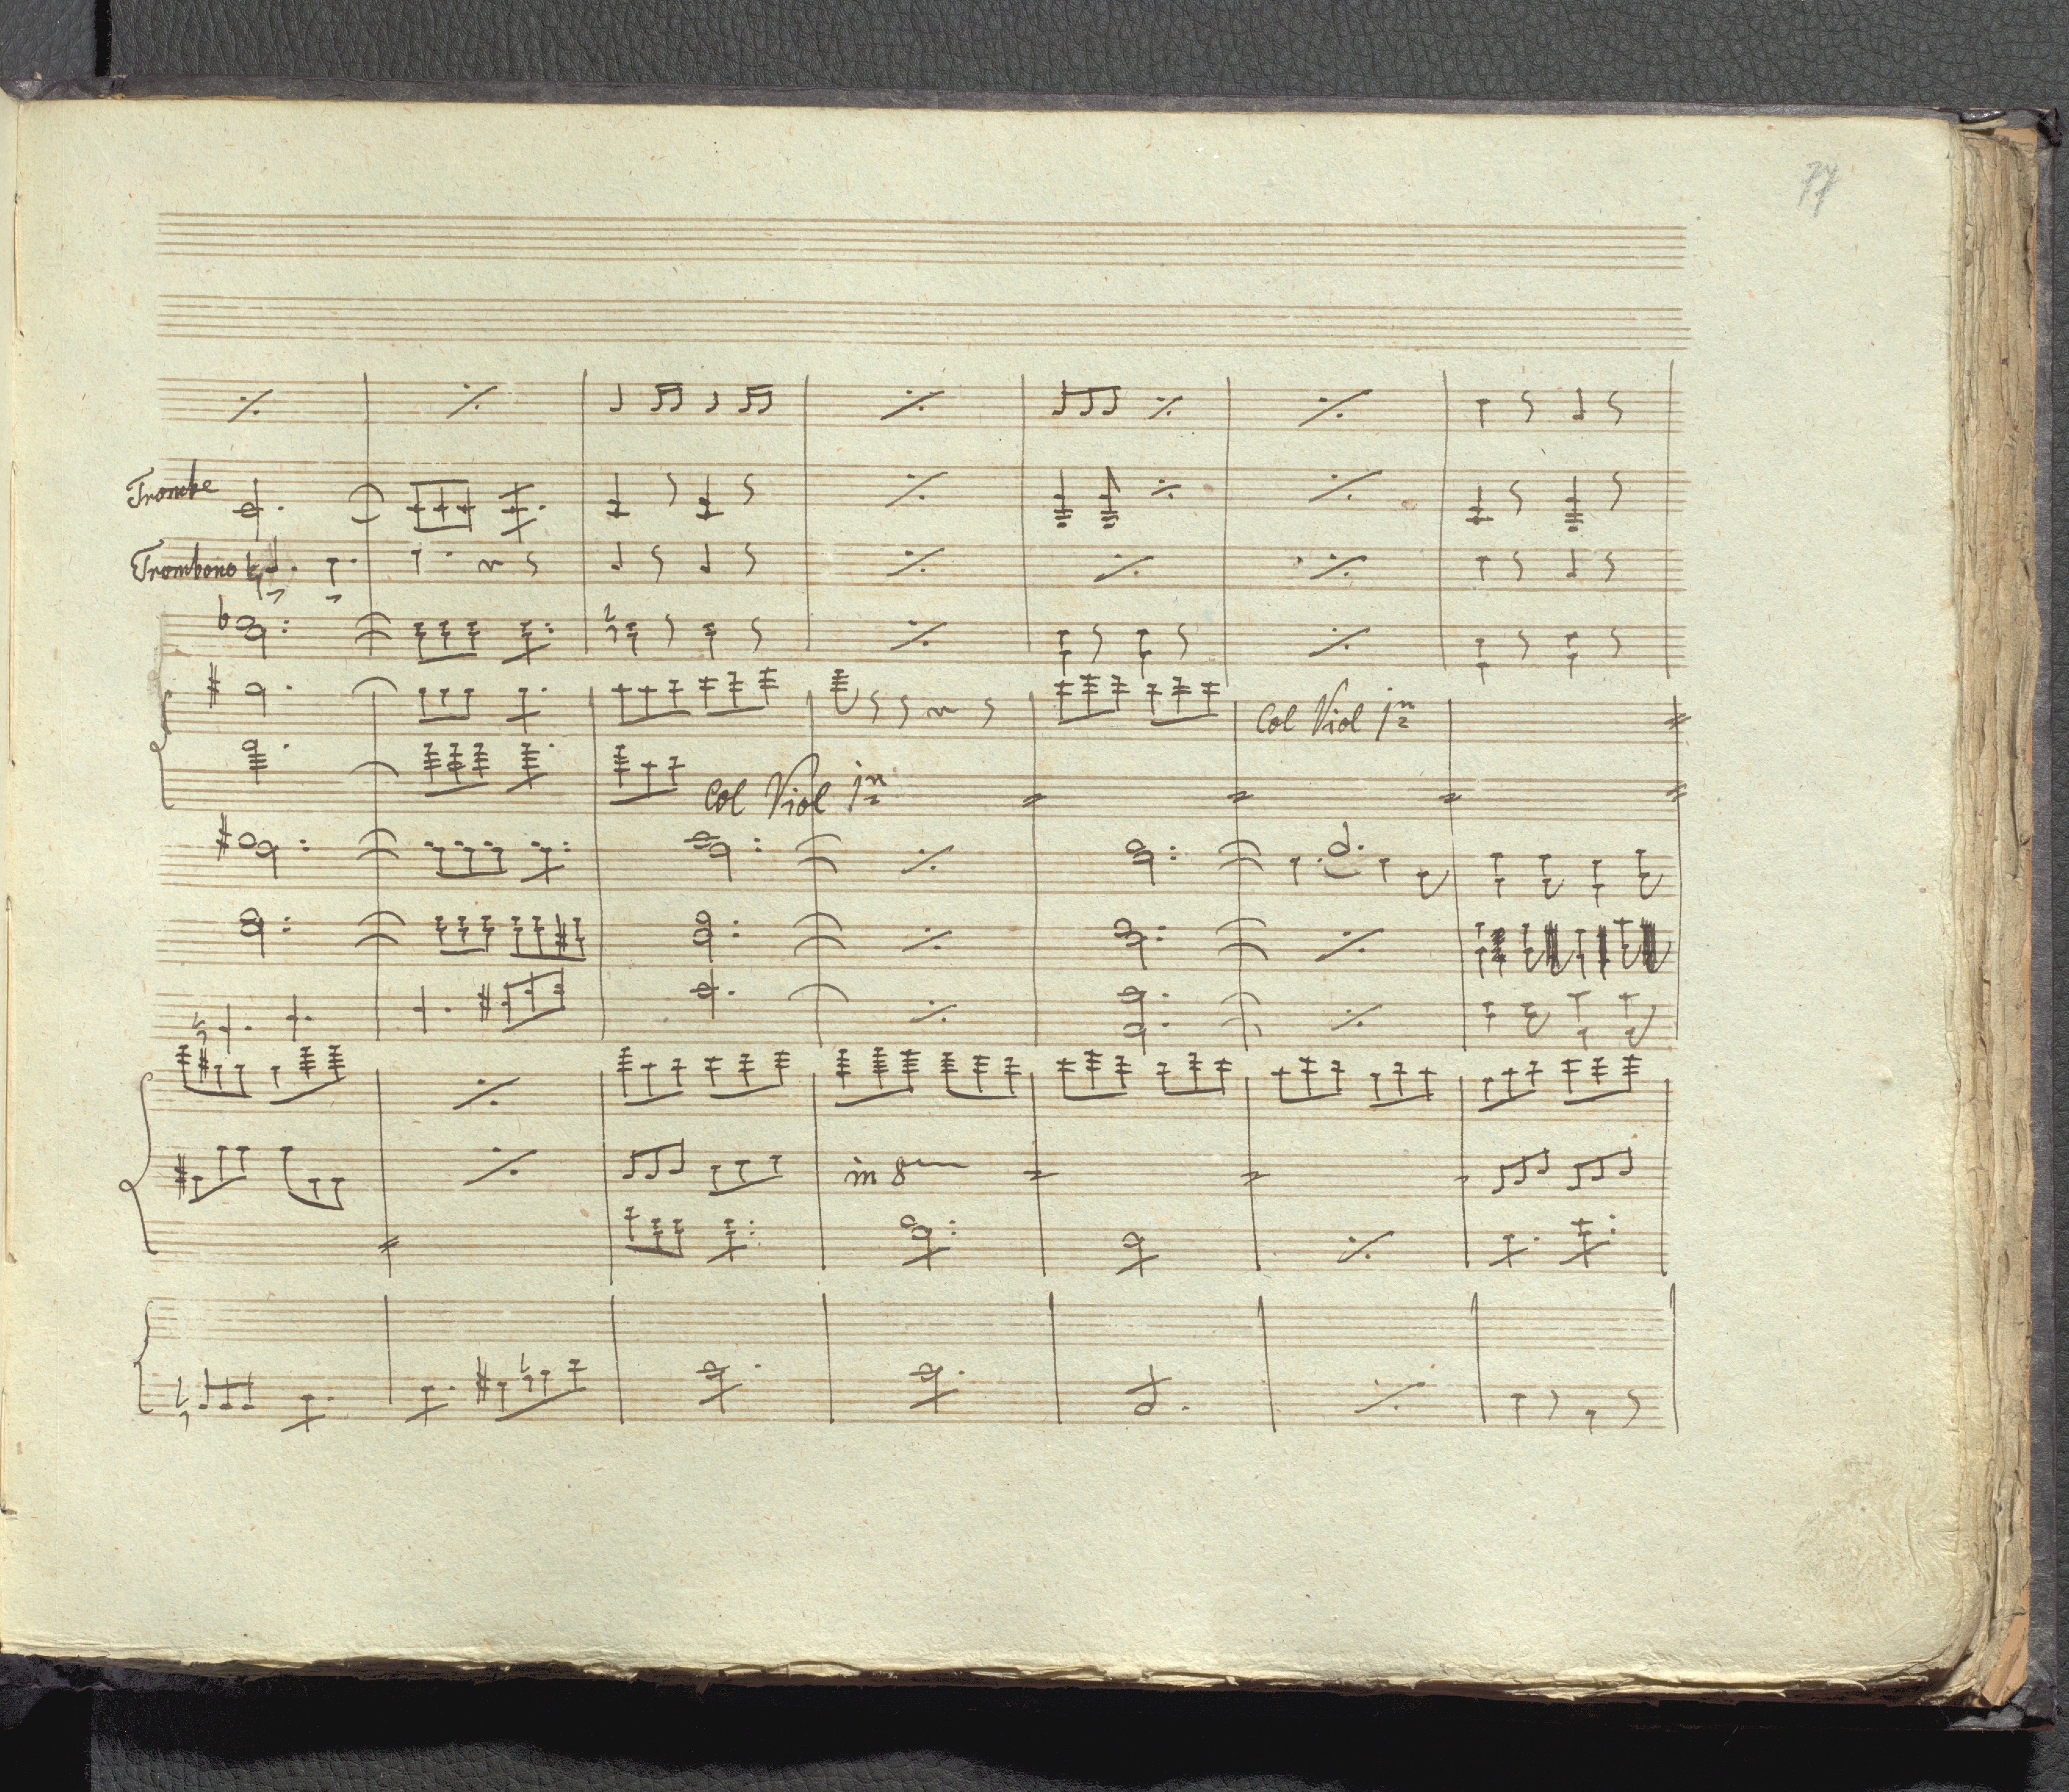 77
Trombe
Trombono
Col Viol 1mo
Col Viol 1mo
in 8va